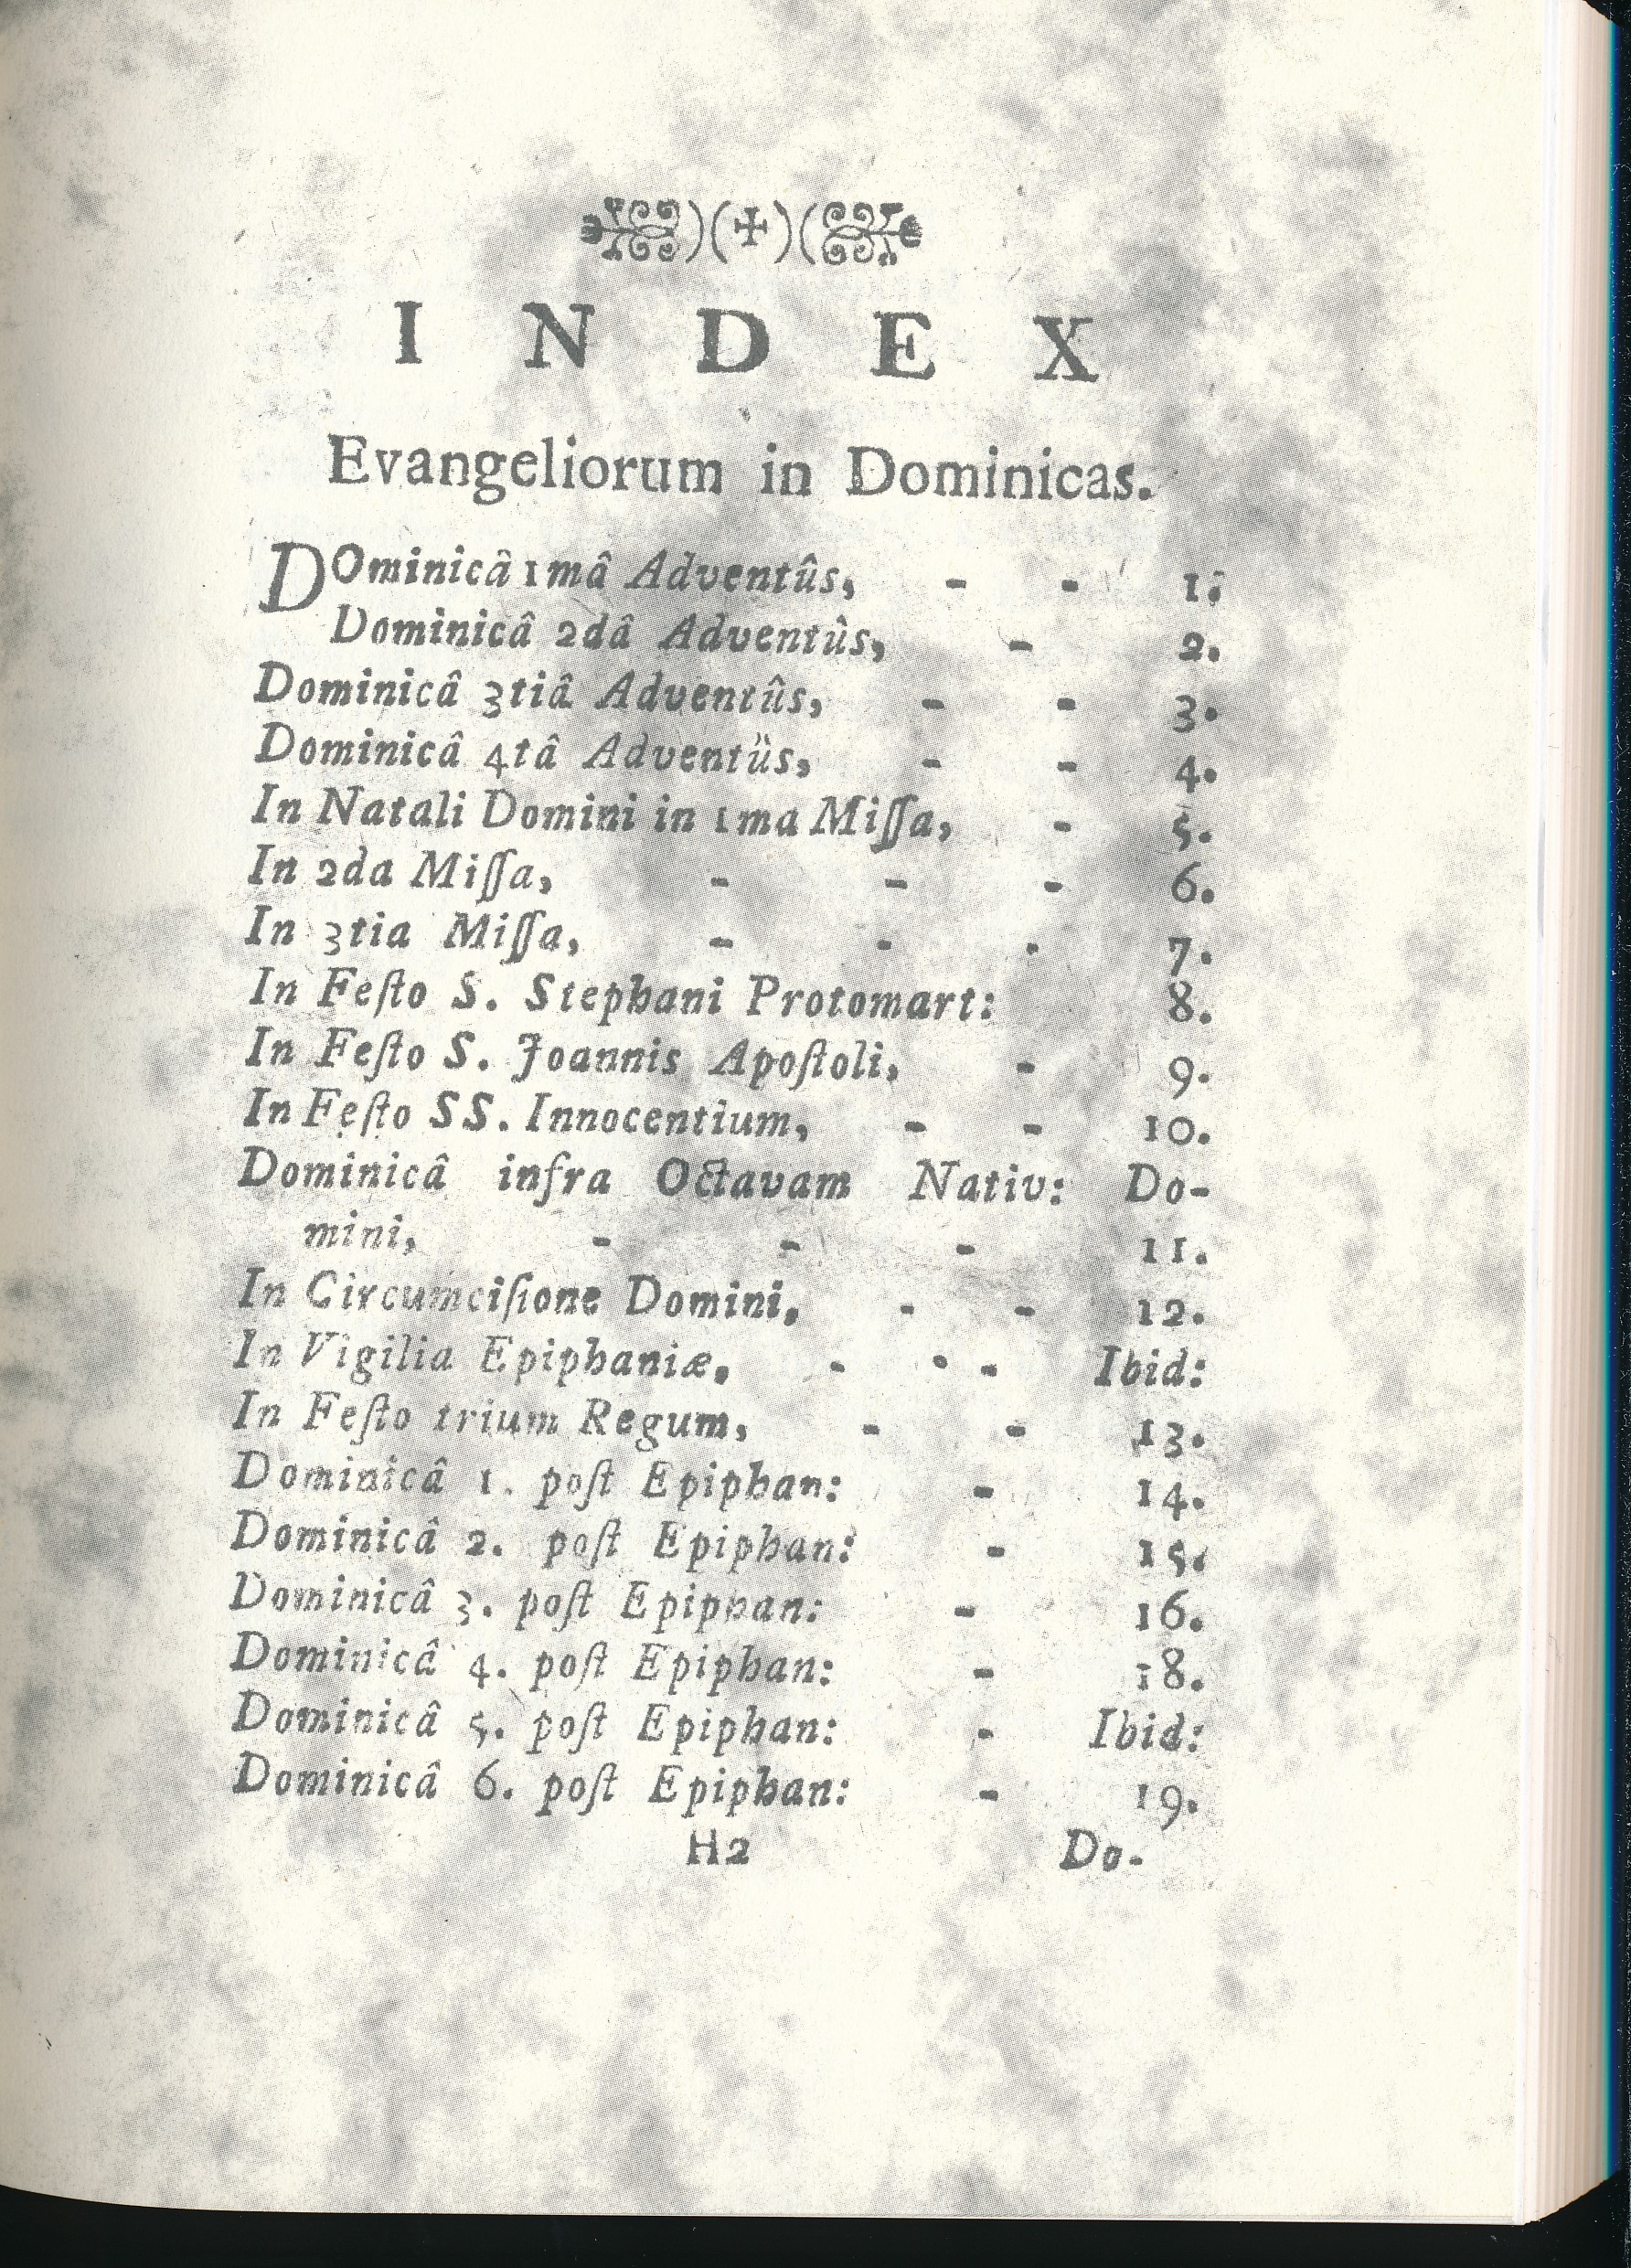 )(✠)(
I N D E X
Evangeliorum in Dominicas.
DOminicâ 1mâ Adventûs, - - 1.
Dominicâ 2dâ Adventûs, - 2.
Dominicâ 3tiâ Adventûs, - - 3.
Dominicâ 4tâ Adventüs, - - 4.
In Natali Domini in 1ma Miſſa, - 5.
In 2da Miſſa, - - - 6.
In 3tia Miſſa, - - - 7.
In Feſto S. Stephani Protomart: 8.
In Feſto S. Joannis Apoſtoli, - 9.
In Feſto SS. Innocentium, - - 10.
Dominicâ infra Octavam Nativ: Do-
mini, - - - 11.
In Circumciſione Domini, - - 12.
In Vigilia Epiphaniæ, - - - Ibid:
In Feſto trium Regum, - - 13.
Dominicâ 1. poſt Epiphan: - 14.
Dominicâ 2. poſt Epiphan: - 15.
Dominicâ 3. poſt Epiphan: - 16.
Dominicâ 4. poſt Epiphan: - 18.
Dominicâ 5. poſt Epiphan: - Ibid:
Dominicâ 6. poſt Epiphan: - 19.
H2 Do-